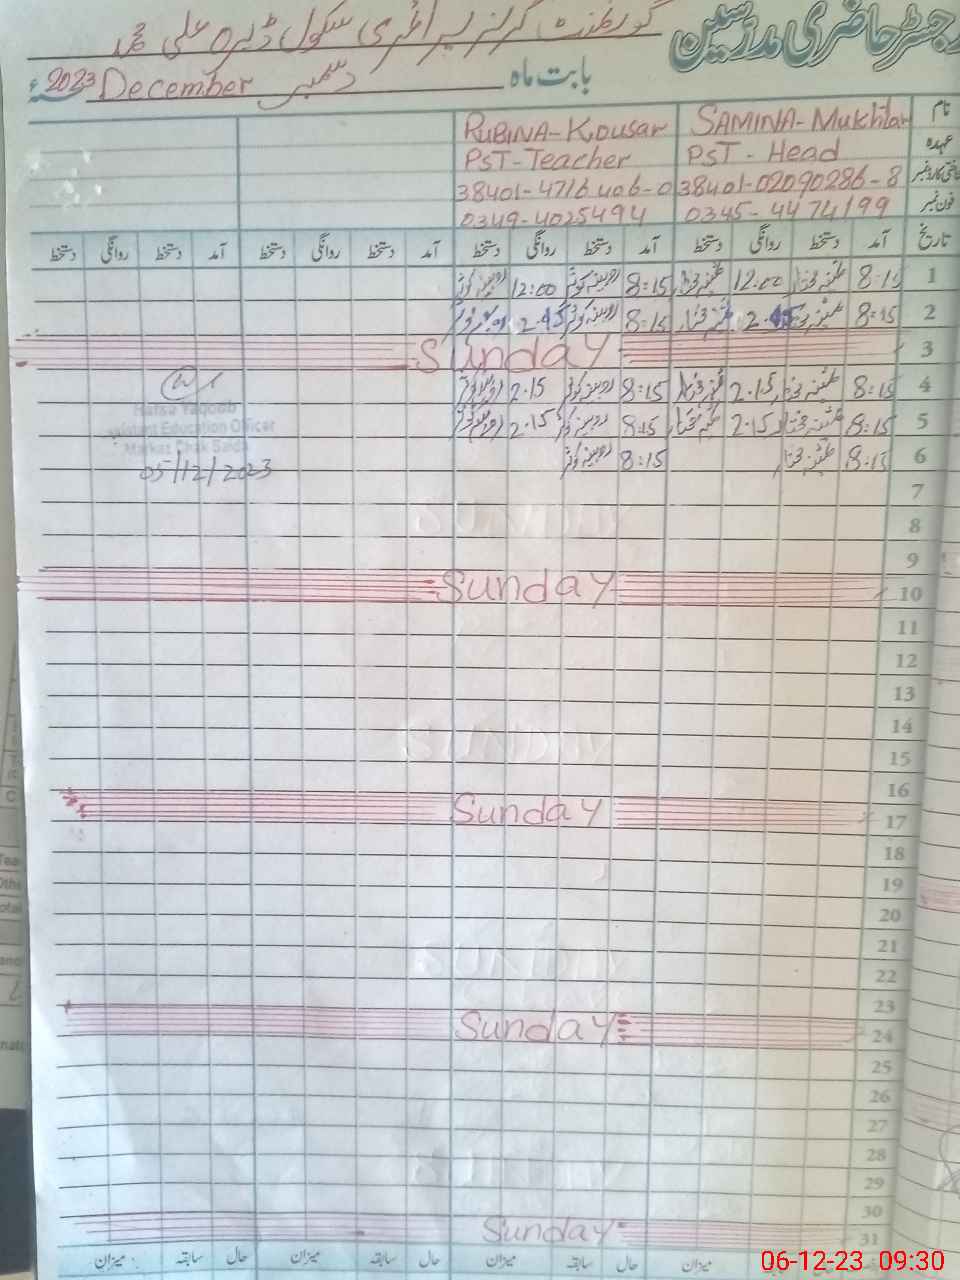 رجسٹر حاضری مدرسین
گورنمنٹ گرلز پرائمری سکول ڈیرہ علی محمد
بابت ماہ دسمبر December 2023ء
نام SAMINA-Mukhtar RUBINA-Kousar
عہدہ PST - Head PST-Teacher
شناختی کارڈ نمبر 38401-02090286-8 38401-4716406-0
فون نمبر 0345-4474199 0349-4025494
تاریخ آمد دستخط روانگی دستخط آمد دستخط روانگی دستخط آمد دستخط روانگی دستخط آمد دستخط روانگی دستخط
1 8:15 ثمینہ مختار 12:00 ثمینہ مختار 8:15 روبینہ کوثر 12:00 روبینہ کوثر
2 8:15 ثمینہ مختار 2.45 ثمینہ مختار 8:15 روبینہ کوثر 2.45 روبینہ کوثر
3 Sunday
4 8:15 ثمینہ مختار 2.15 ثمینہ مختار 8:15 روبینہ کوثر 2.15 روبینہ کوثر
Hafsa Yaqoob
5 8:15 ثمینہ مختار 2.15 ثمینہ مختار 8:15 روبینہ کوثر 2.15 روبینہ کوثر
Assistant Education Officer
Markaz Chak Saida
6 8:15 ثمینہ مختار 8:15 روبینہ کوثر
05/12/2023
7
8
SUNDAY
9
10 Sunday
11
12
13
14
SUNDAY
15
16
17 Sunday
18
19
20
21
22
SUNDAY
23
24 Sunday
25
26
27
28
SUNDAY
29
30
31 Sunday
میزان حال سابقہ میزان حال سابقہ میزان حال سابقہ میزان
06-12-23 09:30